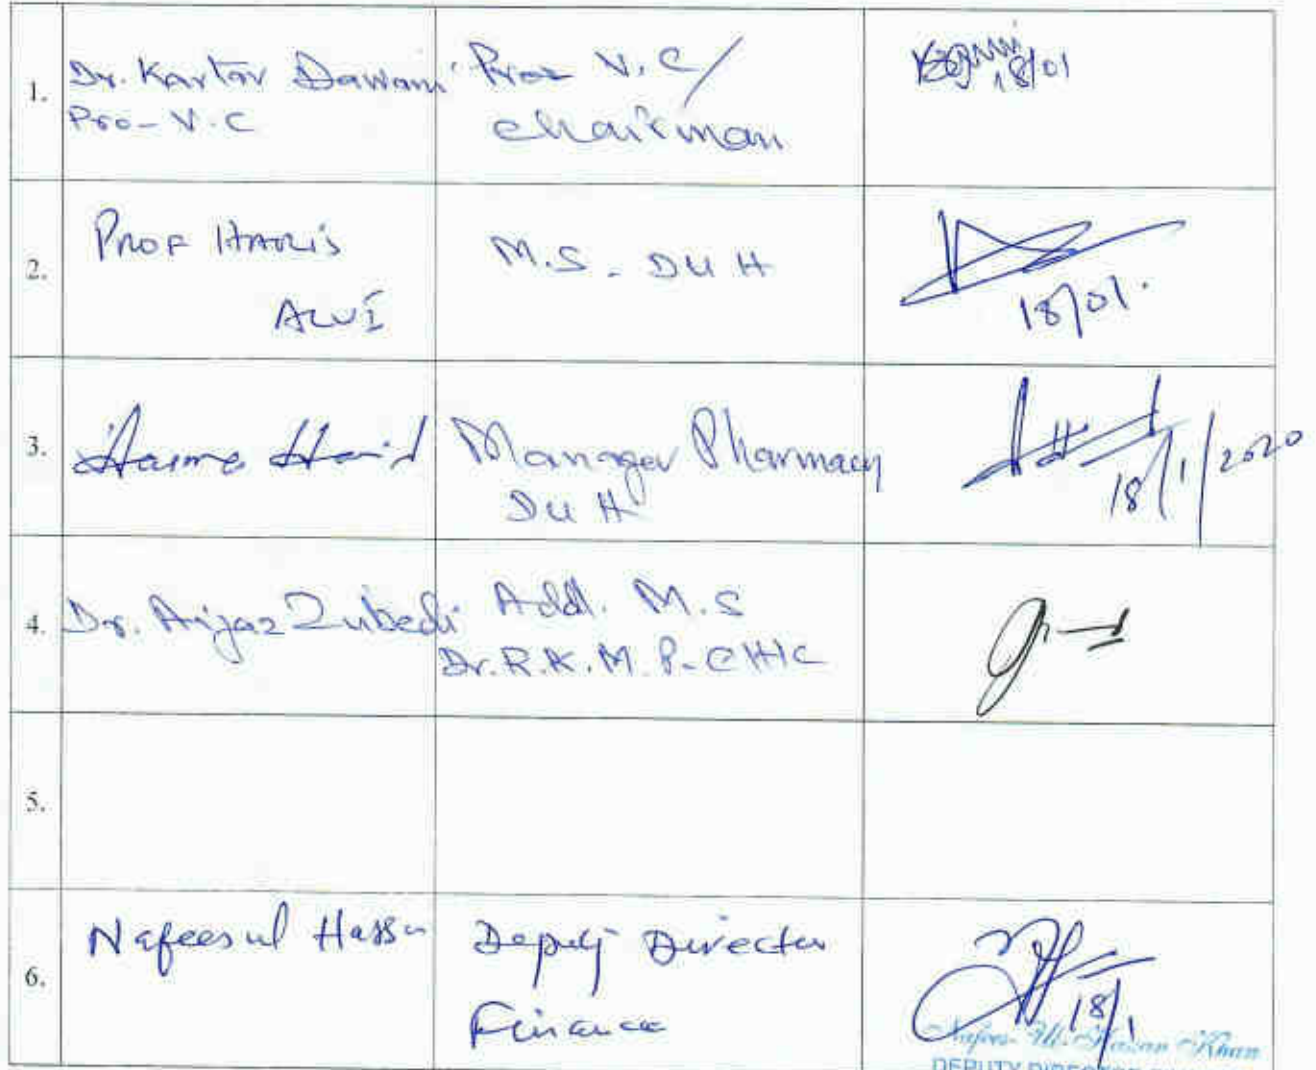 1.
Dr. Kartar Dawani
Pro-V.C
Pro V.C/
Chairman
18/01
2.
PROF HARIS
ALVI
M.S - DUH
18/01.
3.
Manager Pharmacy
DUH
18/1/2020
4.
Dr. Aijaz Zubedi
Addl. M.S
Dr. R.K.M.P-CHHC
5.
6.
Nafeesul Hassan
Deputy Director
Finance
18/1
Nafees-Ul-Hassan Khan
DEPUTY DIRECTOR